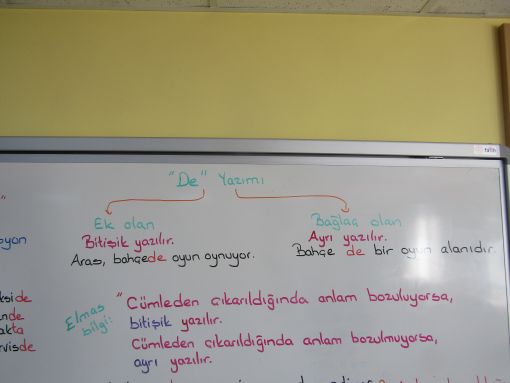 "De" Yazımı
Ek olan
Bitişik yazılır.
Aras, bahçede oyun oynuyor.
Bağlaç olan
Ayrı yazılır.
Bahçe de bir oyun alanıdır.
Elmas
bilgi:
"Cümleden çıkarıldığında anlam bozuluyorsa,
bitişik yazılır.
Cümleden çıkarıldığında anlam bozulmuyorsa,
ayrı yazılır.